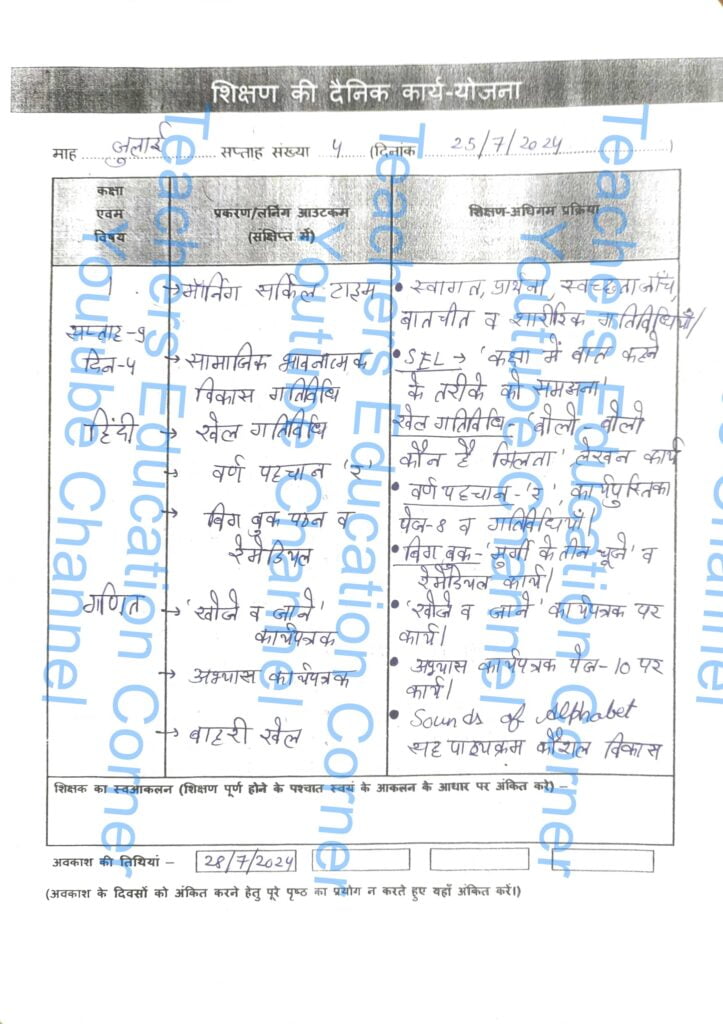 शिक्षण की दैनिक कार्य-योजना
माह जुलाई सप्ताह संख्या 4 (दिनांक 25/7/2024)
कक्षा एवम विषय
प्रकरण/लर्निंग आउटकम (संक्षिप्त में)
शिक्षण-अधिगम प्रक्रिया
1
सप्ताह-9
दिन-4
→ मॉर्निंग सर्किल टाइम
→ सामाजिक भावनात्मक
विकास गतिविधि
हिंदी → खेल गतिविधि
→ वर्ण पहचान 'र'
→ बिग बुक पठन व
रेमेडियल
गणित → 'खोजे व जाने'
कार्यपत्रक
→ अभ्यास कार्यपत्रक
→ बाहरी खेल
• स्वागत, प्रार्थना, स्वच्छता जाँच,
बातचीत व शारीरिक गतिविधियाँ।
• SEL → 'कक्षा में बात कहने
के तरीके को समझना'
खेल गतिविधि - 'बोलो - बोलो
कौन है मिलता' लेखन कार्य
• वर्ण पहचान - 'र', कार्यपुस्तिका
पेज-8 व गतिविधियाँ।
• बिग बुक - 'मुर्गी के तीन चूजे' व
रेमेडियल कार्य।
• 'खोजे व जाने' कार्यपत्रक पर
कार्य।
• अभ्यास कार्यपत्रक पेज-10 पर
कार्य।
• Sounds of Alphabet
सह पाठ्यक्रम कौशल विकास
शिक्षक का स्वआकलन (शिक्षण पूर्ण होने के पश्चात स्वयं के आकलन के आधार पर अंकित करे) –
अवकाश की तिथियां – 28/7/2024
(अवकाश के दिवसों को अंकित करने हेतु पूरे पृष्ठ का प्रयोग न करते हुए यहाँ अंकित करें।)
Teachers Education Corner
Youtube Channel
Teachers Education Corner
Youtube Channel
Teachers Education Corner
Youtube Channel